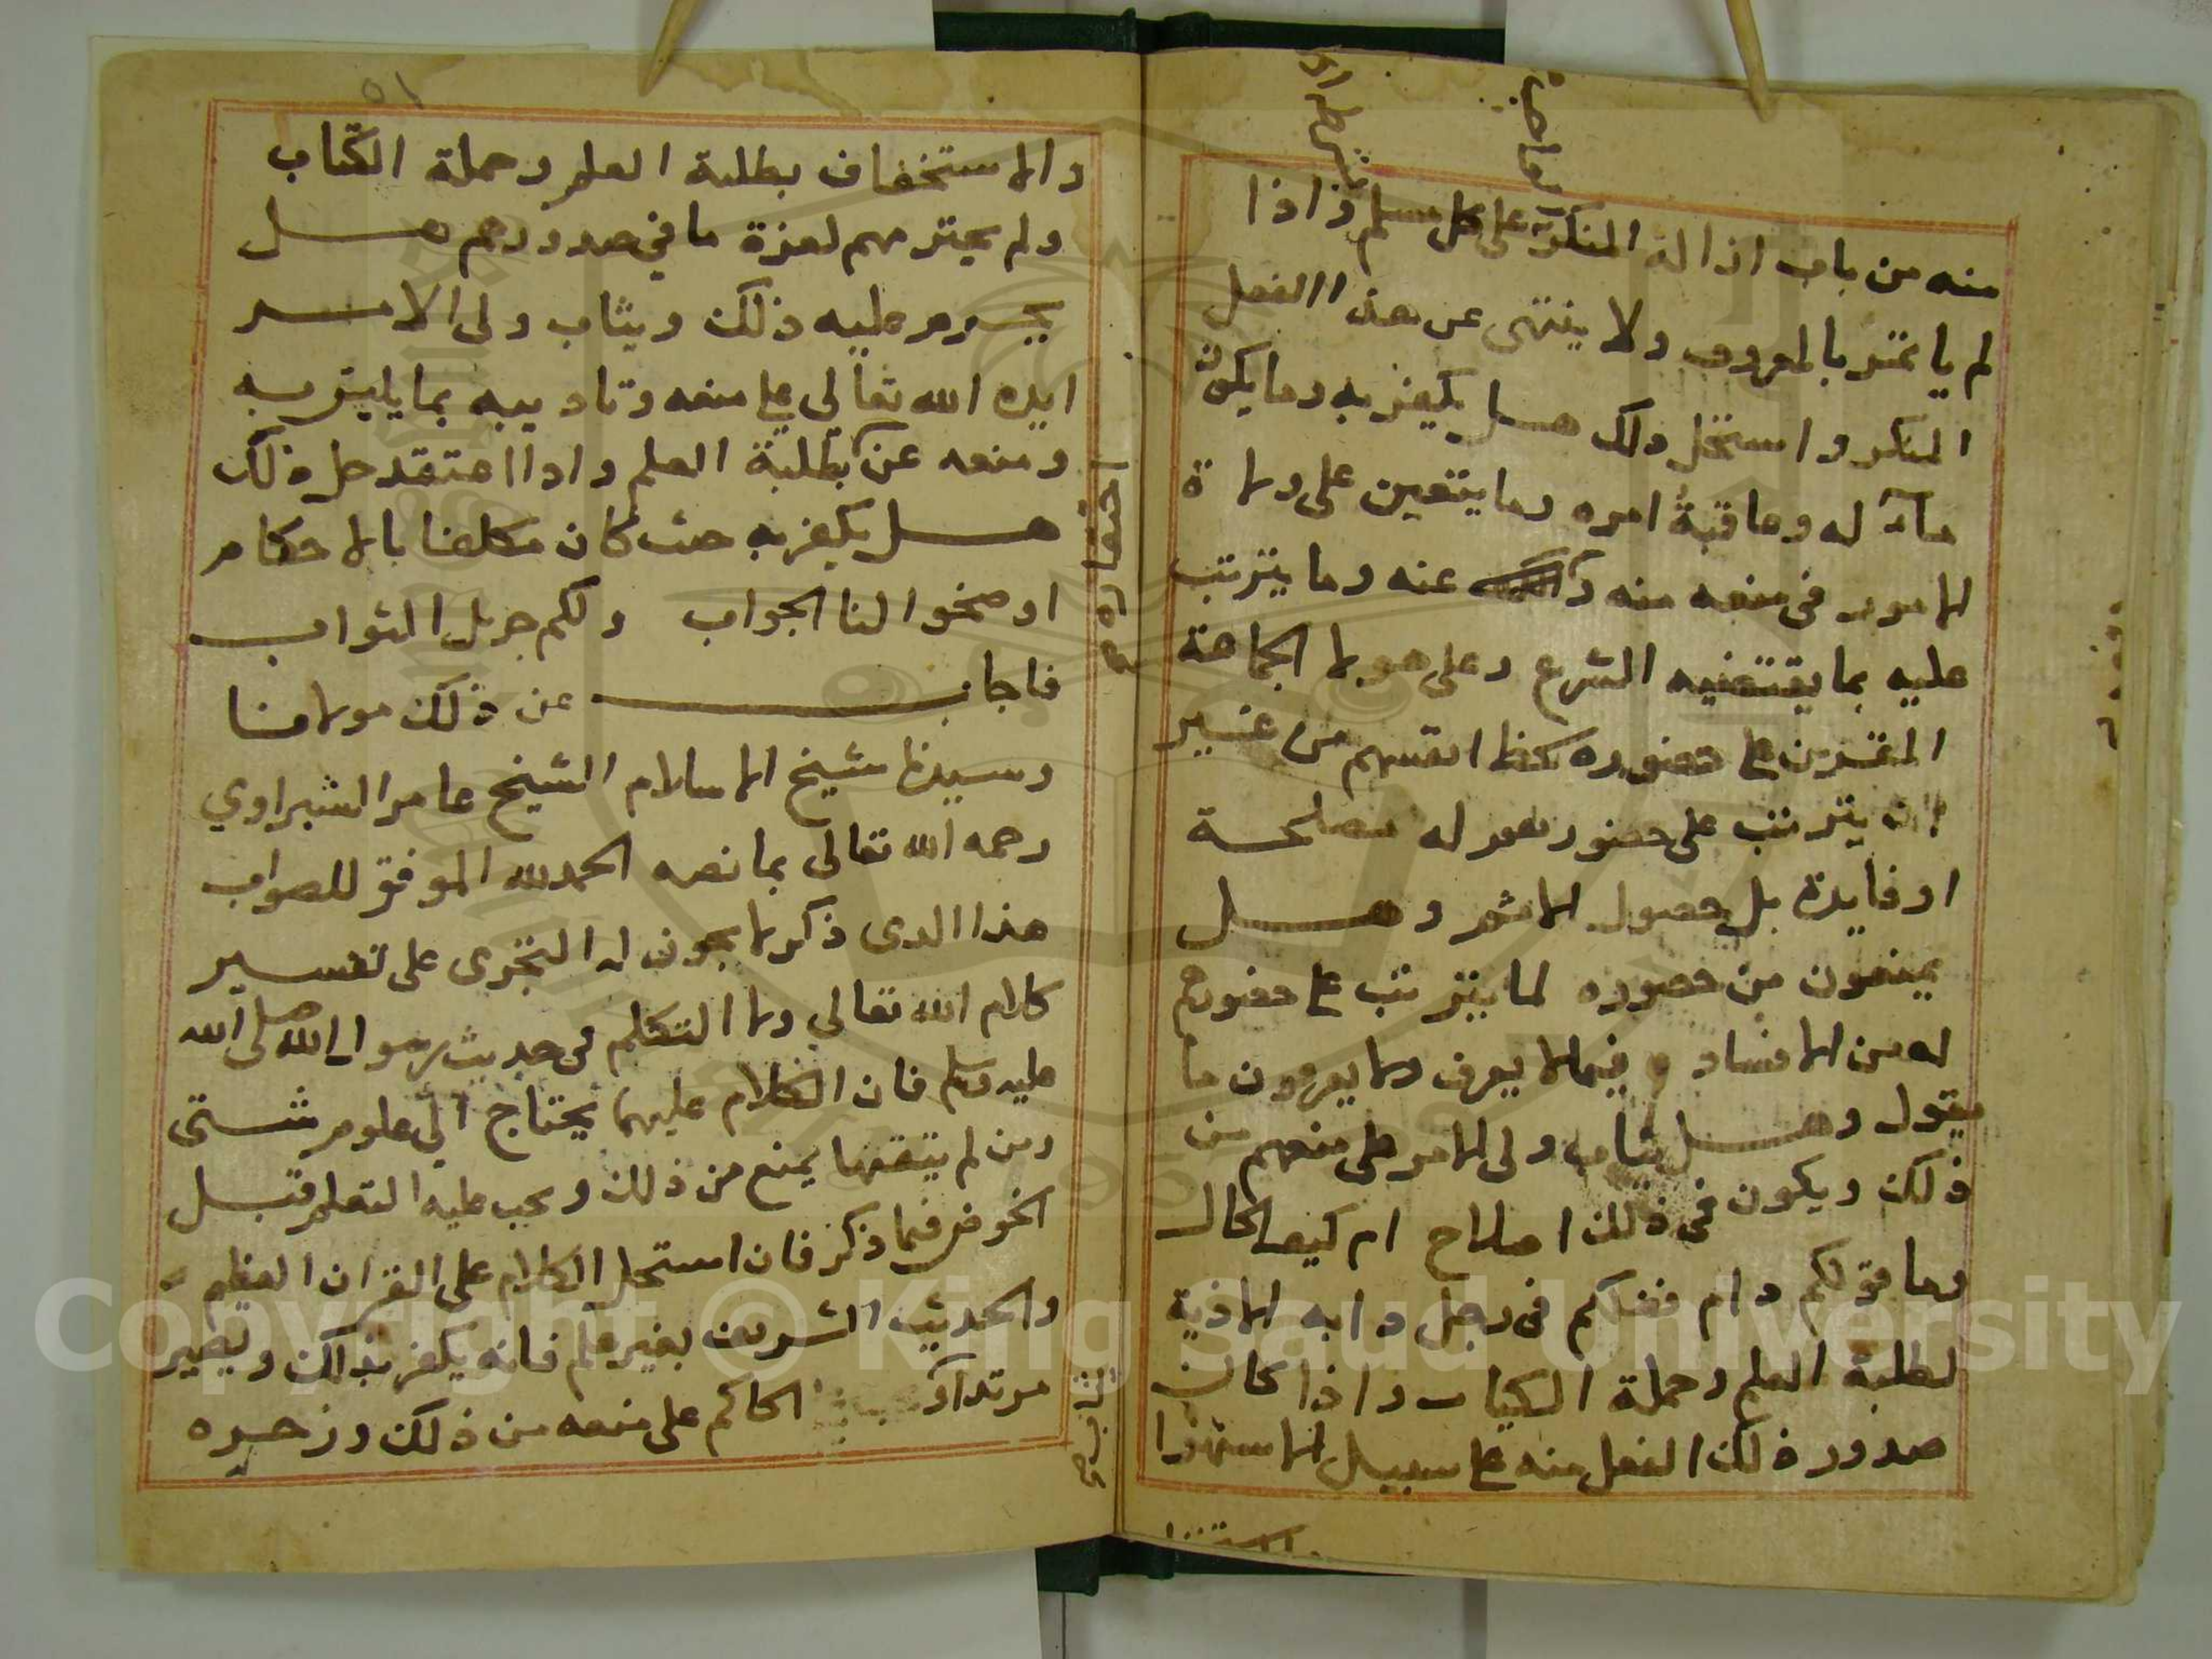 منه من باب ازالة المنكر على كل مسلم واذا
لم ياتمر بالمعروف ولا ينتهى عن هذا الفعل
المنكر واستحل ذلك هل يكفر به وما يكون
مآله وعاقبة امره وما يتعين على ولاة
الامور فى منعه منه عنه وما يترتب
عليه بما يقتضيه الشرع وعلى هولا الجماعة
المقرين على حضوره انفسهم من غير
ان يترتب على حضورهم له مصلحة
او فايدة بل حصول الاثم وهل
يمنعون من حضوره لما يترتب على حضورهم
له من الافساد فيما لا يعرف ولا يعرفون ما
يقول وهل يثاب ولى الامر على منعهم من
ذلك ويكون فى ذلك اصلاح ام كيف الحال
وما قولكم دام فضلكم فى رجل دابه الاذية
لطلبة العلم وحملة الكتاب واذا كان
صدور ذلك الفعل منه على سبيل الاستهزا
والاستخفاف بطلبة العلم وحملة الكتاب
ولم يحترمهم لعزة ما في صدورهم هل
يحرم عليه ذلك ويثاب ولى الامر
ايده الله تعالي على منعه وتاديبه بما يليق به
ومنعه عن بطلبة العلم واذا اعتقد حل ذلك
هل يكفر به حيث كان مكلفا بالاحكام
اوضحوا لنا الجواب ولكم جزيل الثواب
فاجاب عن ذلك مولانا
وسيدنا شيخ الاسلام الشيخ عامر الشبراوي
رحمه الله تعالى بما نصه الحمد لله الموفق للصواب
هذا الذى ذكر لا يجوز له التجرى على تفسير
كلام الله تعالي ولا التكلم فى حديث رسول الله صلى الله
عليه وسلم فان الكلام عليهما يحتاج الي علوم شتى
ومن لم يتقنها يمنع من ذلك ويجب عليه التعلم قبل
الخوض فيما ذكر فان استحل الكلام على القران العظيم
والحديث الشريف بغير علم فانه يكفر بذلك ويصير
مرتدا الحاكم على منعه من ذلك وزجره
Copyright © King Saud University